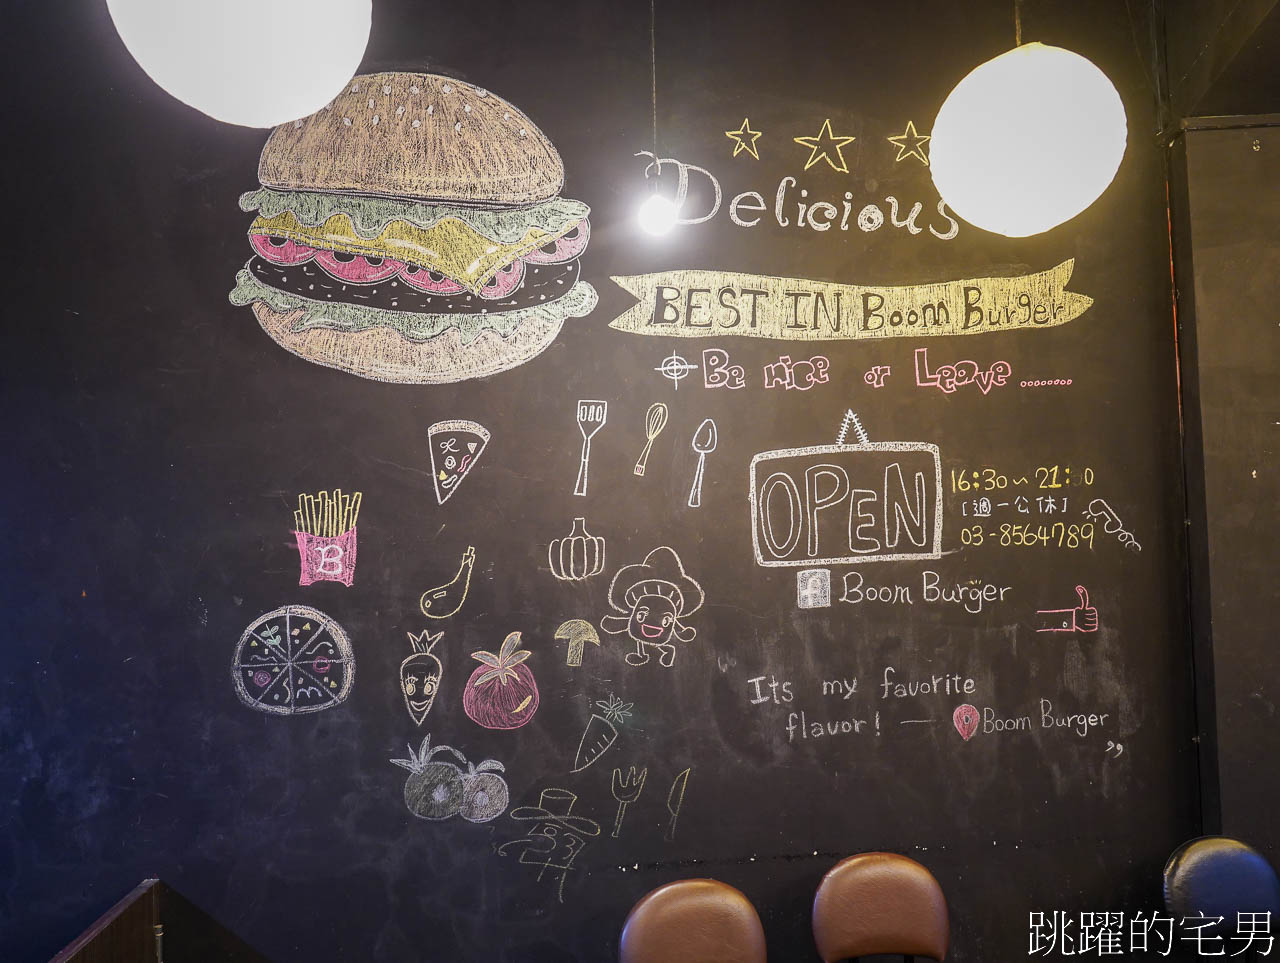 Delicious
BEST IN Boom Burger
Be nice or Leave ........
OPEN
16:30~21:30
[週一公休]
03-8564789
f Boom Burger
B
Its my favorite
flavor! — Boom Burger „
跳躍的宅男